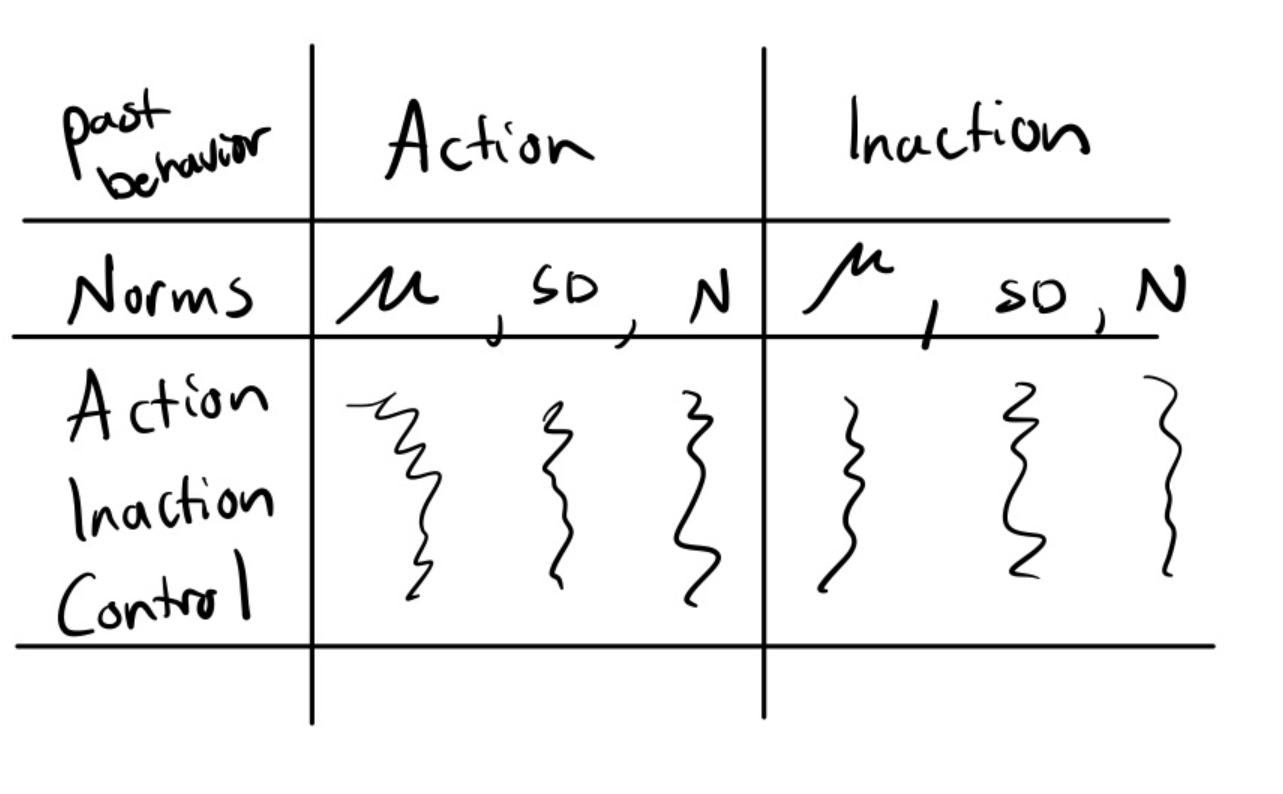 past behavior Action Inaction
Norms μ, SD, N μ, SD, N
Action
Inaction
Control